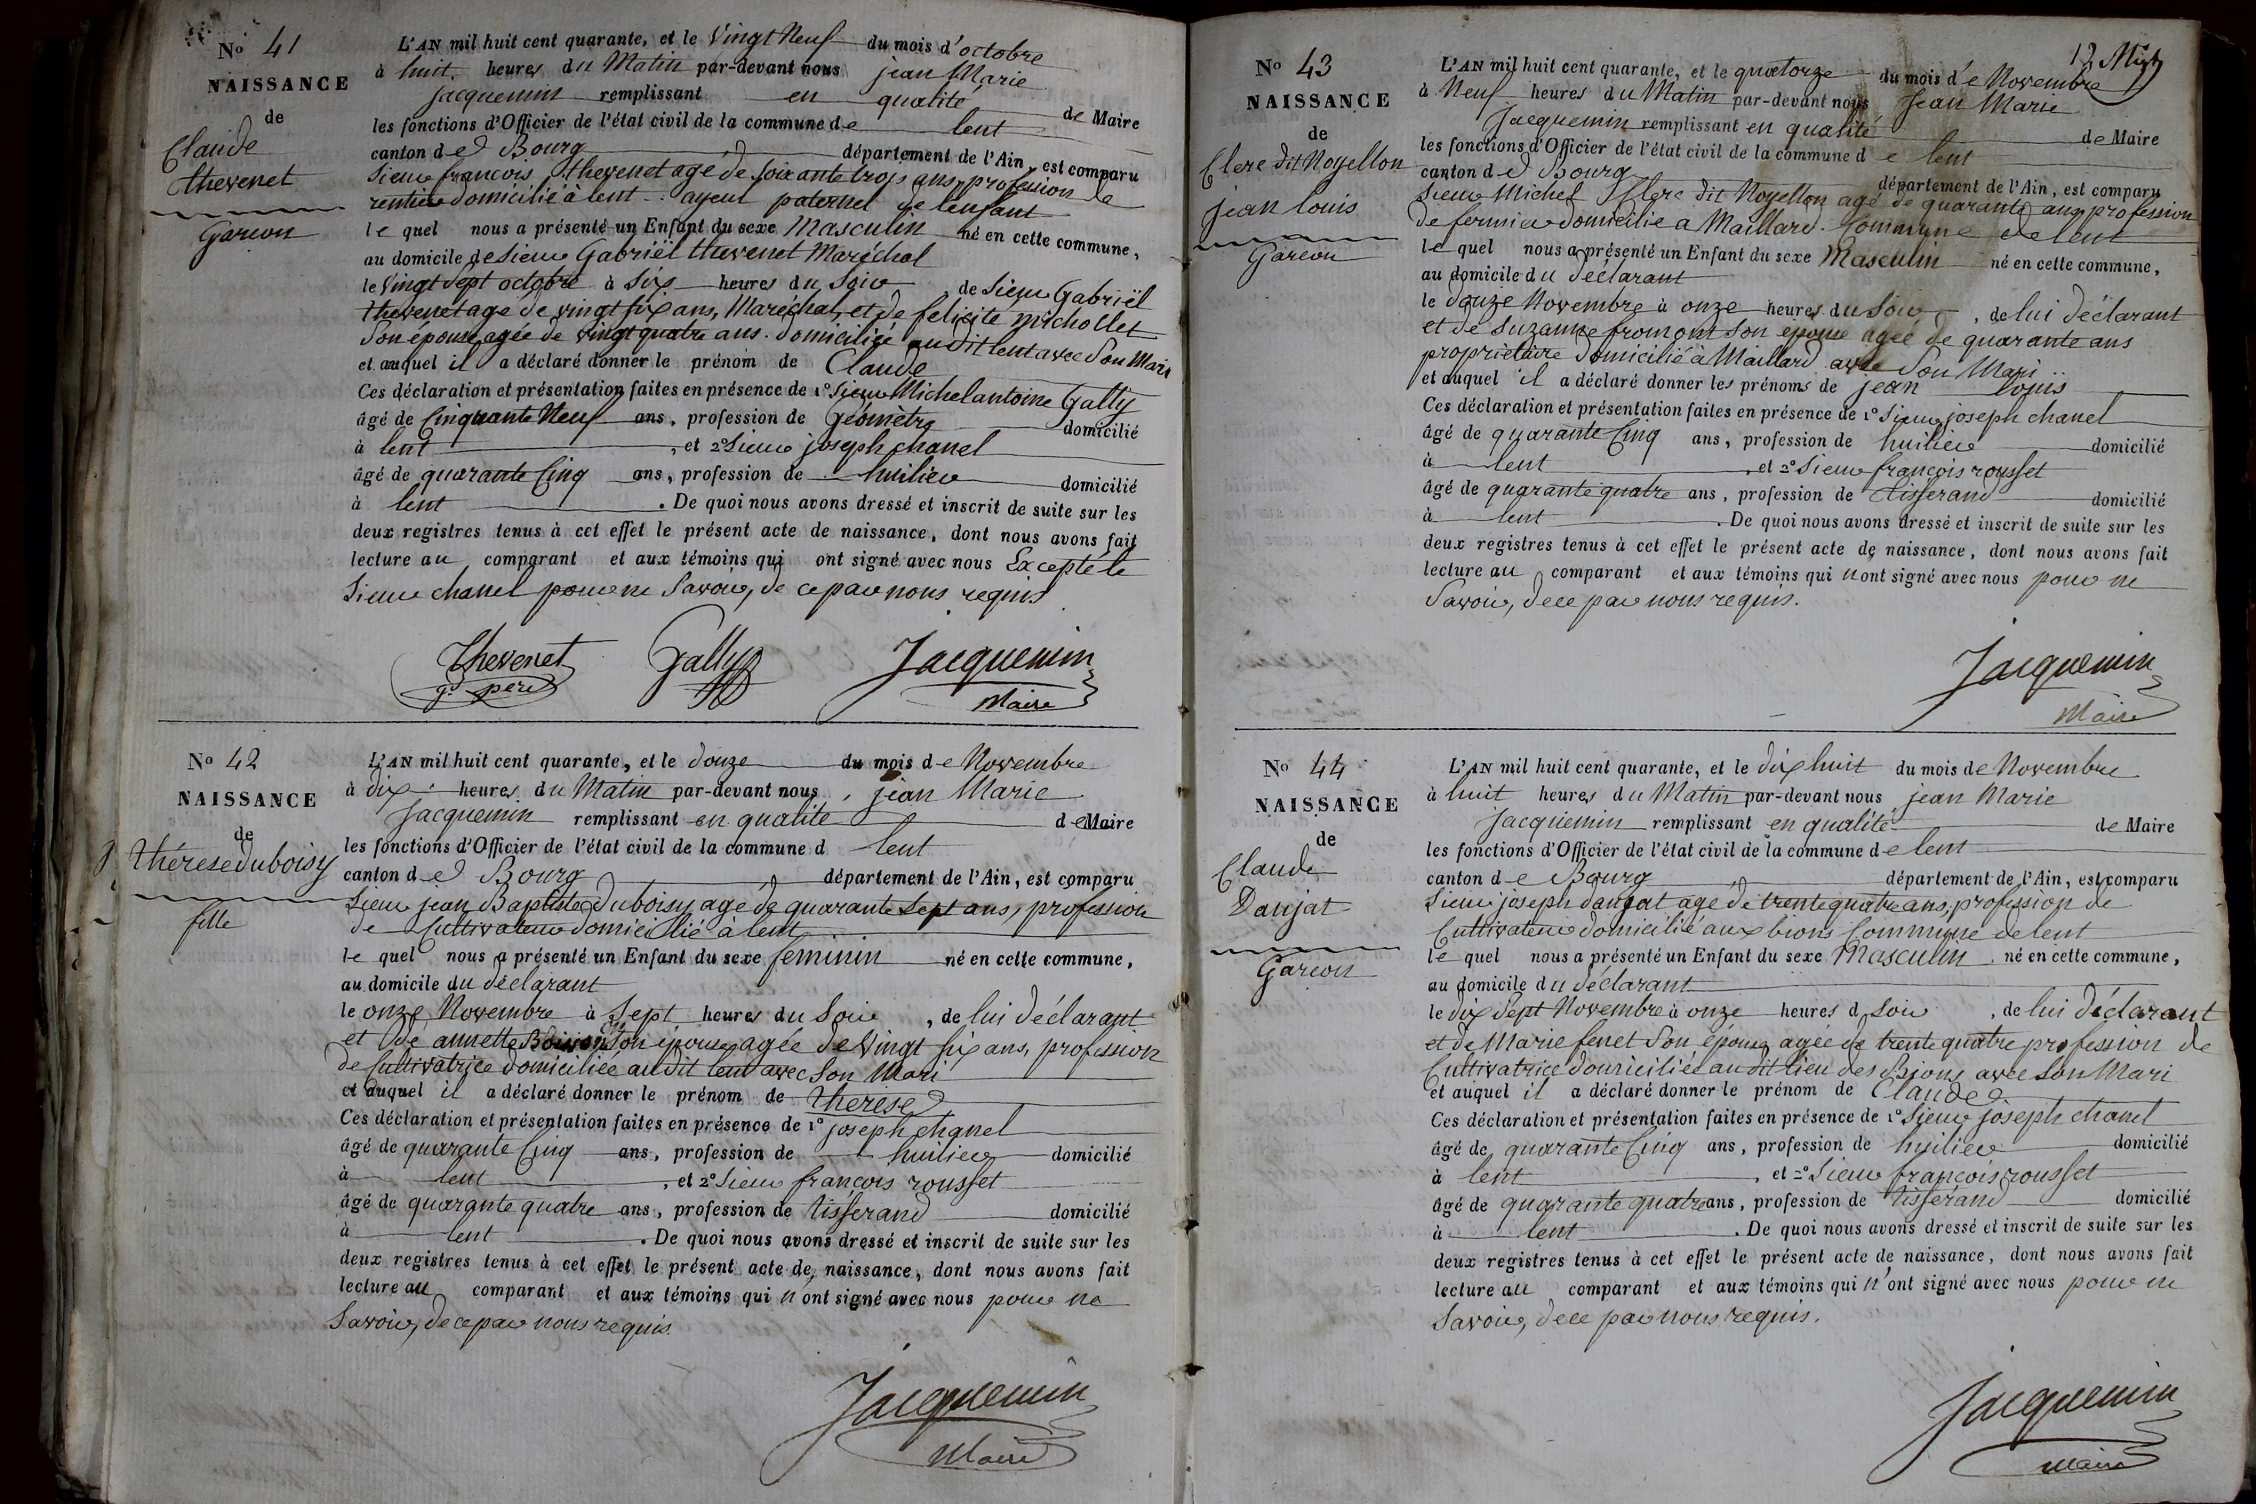 No 41
NAISSANCE
de
Claude
thevenet
Garcon
L'AN mil huit cent quarante, et le Vingt Neuf du mois d'octobre
à huit heures du Matin par-devant nous jean Marie
Jacquemin remplissant en qualité de Maire
les fonctions d'Officier de l'état civil de la commune de lent
canton de Bourg département de l'Ain, est comparu
Sieur francois thevenet agé de Soixante trois ans, profession de
rentier domicilié à lent ayeul paternel de l'enfant
le quel nous a présenté un Enfant du sexe Masculin né en cette commune,
au domicile de Sieur Gabriël thevenet Maréchal
le Vingt Sept octobre à Six heures du Soir, de Sieur Gabriël
thevenet age de vingt six ans, Maréchal, et de felicite Michollet
Son épouse, agée de vingt quatre ans. domiciliée audit lent avec Son Mari
et auquel il a déclaré donner le prénom de Claude
Ces déclaration et présentation faites en présence de 1° Sieur Michel antoine Gally
âgé de Cinquante Neuf ans, profession de Géomètre domicilié
à lent, et 2° Sieur joseph chanel
âgé de quarante Cinq ans, profession de huilier domicilié
à lent. De quoi nous avons dressé et inscrit de suite sur les
deux registres tenus à cet effet le présent acte de naissance, dont nous avons fait
lecture au comparant et aux témoins qui ont signé avec nous Excepté le
Sieur chanel pour ne Savoir, de ce par nous requis
Thevenet Gally Jacquemin
gd père Maire
No 42
NAISSANCE
de
thérèse duboisy
fille
L'AN mil huit cent quarante, et le douze du mois de Novembre
à dix heures du Matin par-devant nous, jean Marie
Jacquemin remplissant en qualité de Maire
les fonctions d'Officier de l'état civil de la commune d lent
canton de Bourg département de l'Ain, est comparu
Sieur jean Baptiste duboisy agé de quarante Sept ans, profession
de Cultivateur domicilié à lent
le quel nous a présenté un Enfant du sexe feminin né en cette commune,
au domicile du déclarant
le onze Novembre à Sept heures du Soir, de lui déclarant
et de annette Son épouse agée de Vingt six ans, profession
de Cultivatrice domiciliée audit lent avec Son Mari
et auquel il a déclaré donner le prénom de thérèse
Ces déclaration et présentation faites en présence de 1° joseph chanel
âgé de quarante Cinq ans, profession de huilier domicilié
à lent, et 2° Sieur françois rousset
âgé de quarante quatre ans, profession de tisserand domicilié
à lent. De quoi nous avons dressé et inscrit de suite sur les
deux registres tenus à cet effet le présent acte de naissance, dont nous avons fait
lecture au comparant et aux témoins qui n'ont signé avec nous pour ne
Savoir, de ce par nous requis
Jacquemin
Maire
No 43
NAISSANCE
de
Clerc dit Noyellon
jean louis
Garcon
L'AN mil huit cent quarante, et le quatorze du mois de Novembre
à Neuf heures du Matin par-devant nous Jean Marie
Jacquemin remplissant en qualité de Maire
les fonctions d'Officier de l'état civil de la commune de lent
canton de Bourg département de l'Ain, est comparu
Sieur Michel Clerc dit Noyellon agé de quarante ans, profession
de fermier domicilié a Maillard. Commune de lent
le quel nous a présenté un Enfant du sexe Masculin né en cette commune,
au domicile du déclarant
le douze Novembre à onze heures du Soir, de lui déclarant
et de Suzanne fromont Son epouse agée de quarante ans
propriétaire domicilié à Maillard avec Son Mari
et auquel il a déclaré donner les prénoms de jean louis
Ces déclaration et présentation faites en présence de 1° Sieur joseph chanel
âgé de quarante Cinq ans, profession de huilier domicilié
à lent, et 2° Sieur françois rousset
âgé de quarante quatre ans, profession de tisserand domicilié
à lent. De quoi nous avons dressé et inscrit de suite sur les
deux registres tenus à cet effet le présent acte de naissance, dont nous avons fait
lecture au comparant et aux témoins qui n'ont signé avec nous pour ne
Savoir, de ce par nous requis.
Jacquemin
Maire
No 44
NAISSANCE
de
Claude
Danjat
Garcon
L'AN mil huit cent quarante, et le dix huit du mois de Novembre
à huit heures du Matin par-devant nous jean Marie
Jacquemin remplissant en qualité de Maire
les fonctions d'Officier de l'état civil de la commune de lent
canton de Bourg département de l'Ain, est comparu
Sieur joseph danjat agé de trente quatre ans, profession de
Cultivateur domicilié aux bions Commune de lent
le quel nous a présenté un Enfant du sexe Masculin né en cette commune,
au domicile du déclarant
le dix Sept Novembre à onze heures d Soir, de lui déclarant
et de Marie fenet Son épouse agée de trente quatre profession de
Cultivatrice domiciliée audit lieu des Bions avec Son Mari
et auquel il a déclaré donner le prénom de Claude
Ces déclaration et présentation faites en présence de 1° Sieur joseph chanel
âgé de quarante Cinq ans, profession de huilier domicilié
à lent, et 2° Sieur françois rousset
âgé de quarante quatre ans, profession de tisserand domicilié
à lent. De quoi nous avons dressé et inscrit de suite sur les
deux registres tenus à cet effet le présent acte de naissance, dont nous avons fait
lecture au comparant et aux témoins qui n'ont signé avec nous pour ne
Savoir, de ce par nous requis.
Jacquemin
Maire